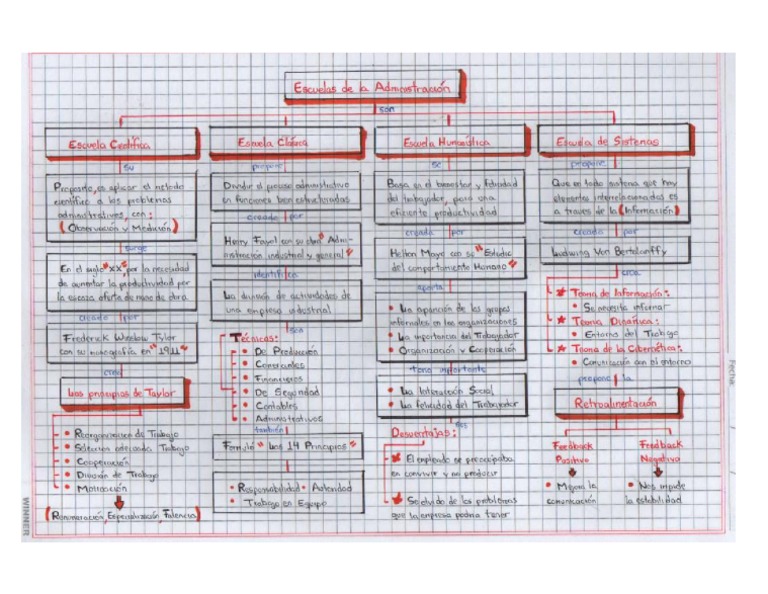 Escuelas de la Administración
son
Escuela Científica
su
Proposito, es aplicar el metodo
científico a los problemas
administrativos, con:
(Observación y Medición)
surge
En el siglo "XX", por la necesidad
de aumentar la productividad por
la escaza oferta de mano de obra.
creado por
Frederick Winslow Tylor
con su monografía en "1911"
creo
Los principios de Taylor
• Reorganización de Trabajo
• Selección adecuada Trabajo
• Cooperación
• División de Trabajo
• Motivación
(Remuneración, Especialización,
Escuela Clásica
propone
Dividir el proceso administrativo
en funciones bien estructuradas
creado por
Henry Fayol con su obra "Admi-
nistración industrial y general"
identifica
La división de actividades de
una empresa industrial
son
Técnicas:
• De Producción
• Comerciales
• Financieros
• De Seguridad
• Contables
• Administrativos
también
Formuló "Los 14 Principios"
• Responsabilidad • Autoridad
• Trabajo en Equipo
Escuela Humanística
se
Basa en el bienestar y felicidad
del trabajador, para una
eficiente productividad
creada por
Helton Mayo con su "Estudio
del comportamiento Humano"
aporta
• La aparición de los grupos
informales en las organizaciones
• La importancia del Trabajador
• Organización y Cooperación
toma importante
• La Interacción Social
• La felicidad del Trabajador
sus
Desventajas:
El empleado se preocupaba
en convivir y no producir
Se olvido de los problemas
que la empresa podria tener
Escuela de Sistemas
propone
Que en todo sistema que hay
elementos interrelacionados es
a través de la (Información)
creado por
Ludwing Von Bertalanffy
crea
Teoria de Información:
• Se necesita informar
Teoria Dinámica:
• Entorno del Trabajo
Teoria de la Cibernética:
• Comunicación con el entorno
propone la
Retroalimentación
Feedback
Positivo
• Mejora la
comunicación
Feedback
Negativo
• Nos impide
la estabilidad
Fecha:
WINNER